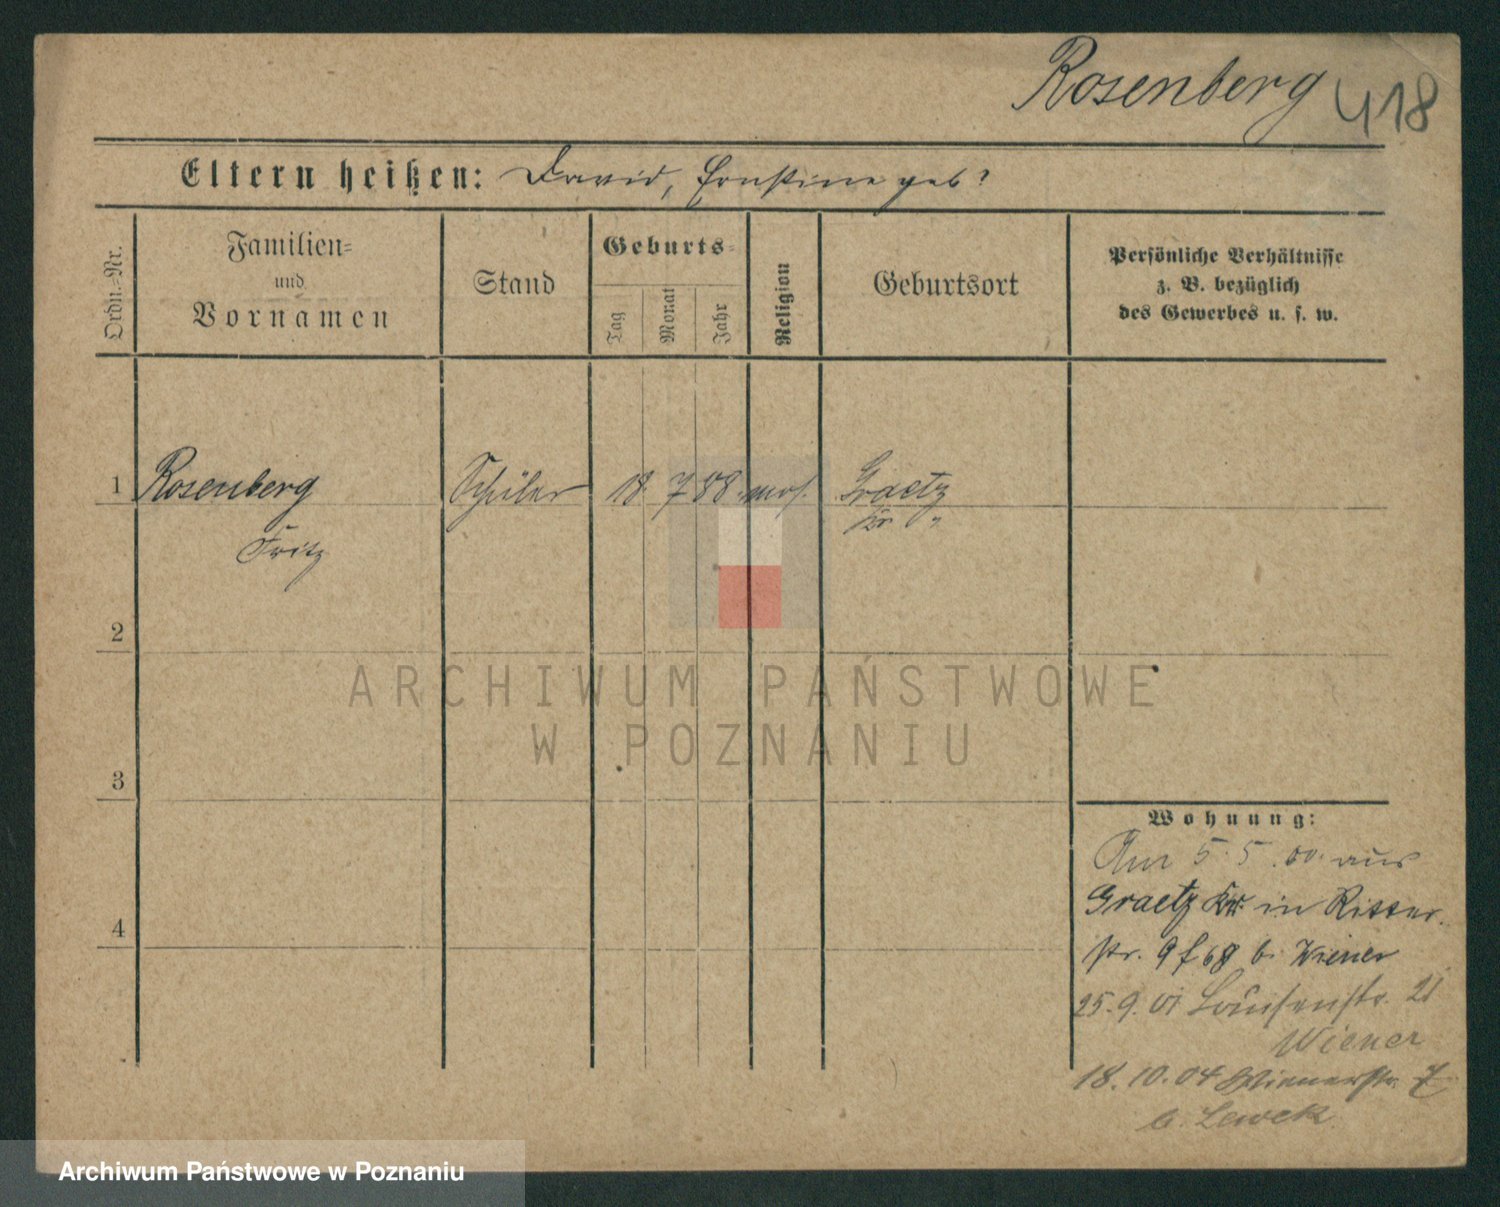 Rosenberg 418
Eltern heißen: David, Ernstine geb?
Ordn.-Nr.
Familien-
und
Vornamen
Stand
Geburts-
Tag
Monat
Jahr
Religion
Geburtsort
Persönliche Verhältnisse
z. B. bezüglich
des Gewerbes u. s. w.
1 Rosenberg Schüler 18. 7 88. mos. Graetz
Kr. "
Fritz
2
3
4
ARCHIWUM PAŃSTWOWE
W POZNANIU
Wohnung:
Am 5. 5. 00. aus
Graetz Kr. in Ritter-
str. 9 b. Wiener
25. 9. 01 Louisenstr. 21
Wiener
18. 10. 04 Wienerstr. 7
b. Lewek
Archiwum Państwowe w Poznaniu